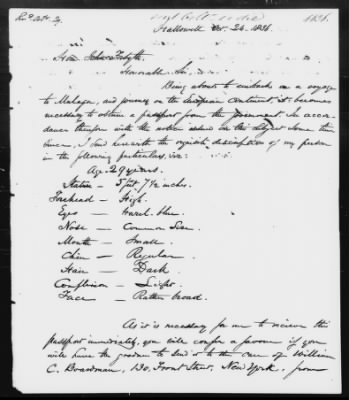 1836.
Hallowell Oct. 24. 1836.
Hon John Forsyth.
Honorable Sir.
Being about to embark on a voyage
to Malaga, and journey on the European Continent, it becomes
necessary to obtain a passport from the government. In accor-
dance therefore with the notice in the some time
since, I send herewith the requisite description of my person
in the following particulars, viz:
Age. 29 years.
Stature — 5 feet 7½ inches.
Forehead — High.
Eyes — Hazel blue.
Nose — Common Size.
Mouth — Small.
Chin — Regular.
Hair — Dark
Complexion — Light.
Face — Rather broad.
As it is necessary for me to receive this
passport immediately, you will confer a favour if you
will have the goodness to send it to the care of William
C. Boardman, 130, Front Street, New York, from